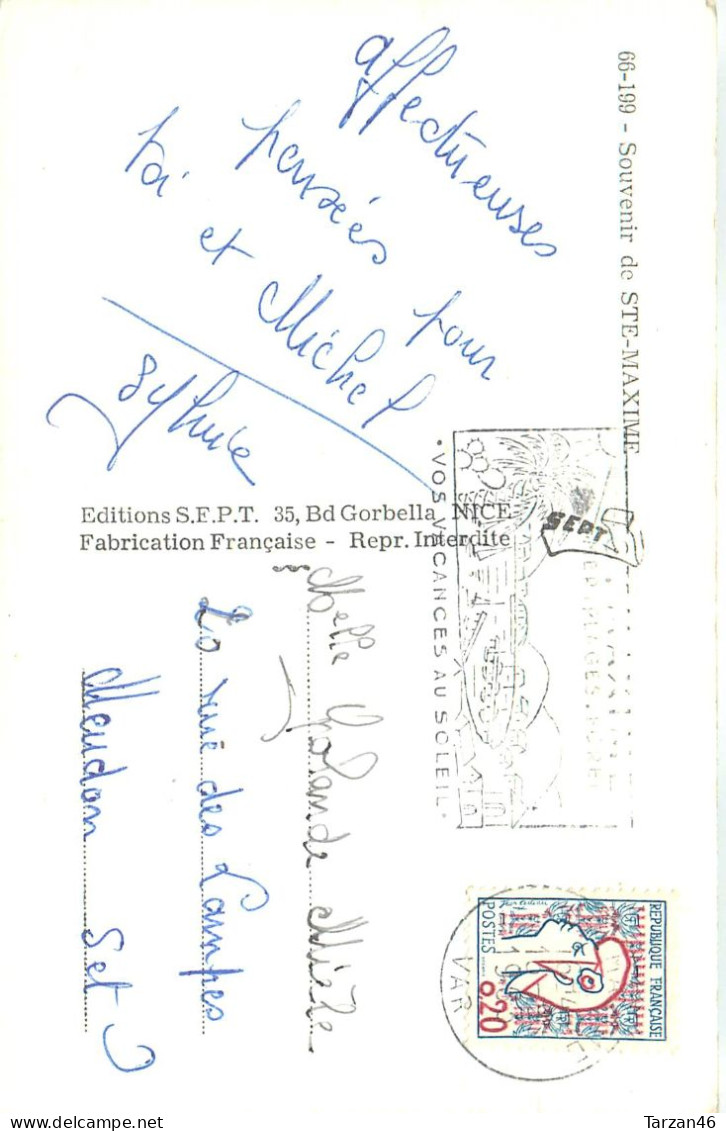 66-199 - Souvenir de STE-MAXIME
affectueuses
pensées pour
toi et Michel
Sylvie
Editions S.E.P.T. 35, Bd Gorbella NICE
Fabrication Française - Repr. Interdite
SEPT
• VOS VACANCES AU SOLEIL •
REPUBLIQUE FRANÇAISE
POSTES
0,20
VAR
Melle Yolande
rue des Lampes
Meudon Set O
Tarzan46